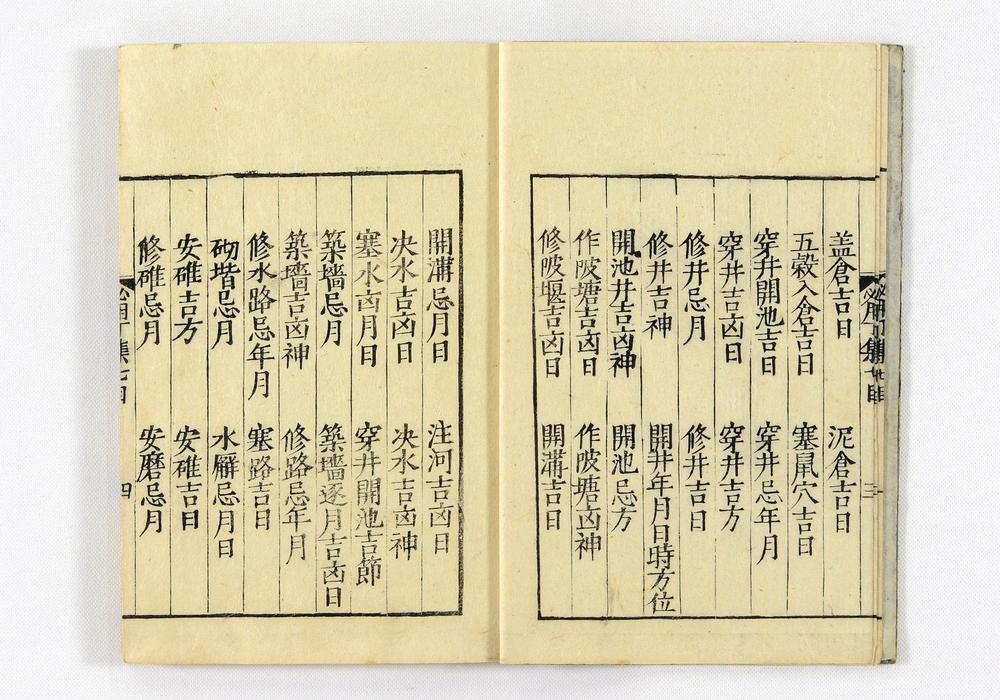 盖倉吉日　泥倉吉日
五穀入倉吉日　塞鼠穴吉日
穿井開池吉日　穿井忌年月
穿井吉凶日　穿井吉方
修井忌月　修井吉日
修井吉神　開井年月日時方位
開池井吉凶神　開池忌方
作陂塘吉凶日　作陂塘凶神
修陂堰吉凶日　開溝吉日
開溝忌月日　注河吉凶日
决水吉凶日　决水吉凶神
塞水凶月日　穿井開池吉節
築墻忌月　築墻逐月吉凶日
築墻吉凶神　修路忌年月
修水路忌年月　塞路吉日
砌堦忌月　水雁忌月日
安碓吉方　安碓吉日
修碓忌月　安磨忌月
四